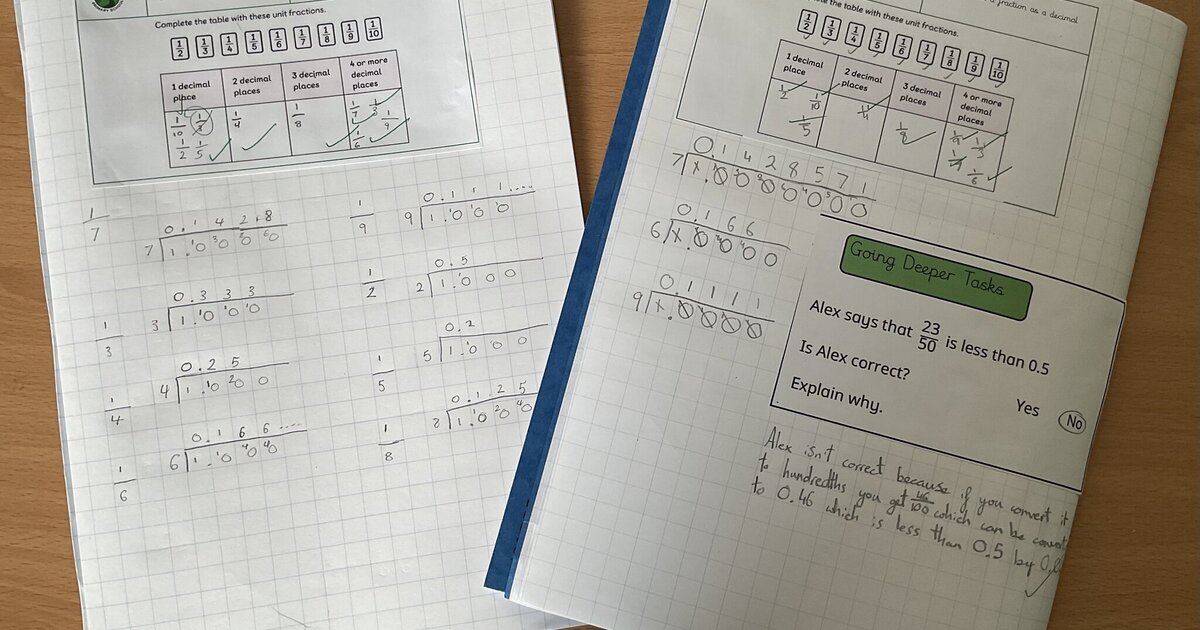 Complete the table with these unit fractions.
1/2 1/3 1/4 1/5 1/6 1/7 1/8 1/9 1/10
1 decimal place
2 decimal places
3 decimal places
4 or more decimal places
1/10 1/3
1/2 1/5
1/4
1/8
1/7 1/3
1/9
1/6
1/7
7 1.0000
0.1428
1/3
0.333
3 1.000
1/4
0.25
4 1.000
1/6
0.166....
6 1.000
1/9
0.111....
9 1.000
1/2
0.5
2 1.000
1/5
0.2
5 1.000
1/8
0.125
8 1.000
fraction as a decimal
the table with these unit fractions.
1/2 1/3 1/4 1/5 1/6 1/7 1/8 1/9 1/10
1 decimal place
2 decimal places
3 decimal places
4 or more decimal places
1/2 1/10
1/5
1/4
1/8
1/9 1/3
1/6
0.1428571
7 1.0000000
0.166
6 1.0000
0.1111
9 1.0000
Going Deeper Tasks
Alex says that 23/50 is less than 0.5
Is Alex correct?
Explain why.
Yes
No
Alex isn't correct because if you convert it
to hundredths you get 46/100 which can be
to 0.46 which is less than 0.5 by